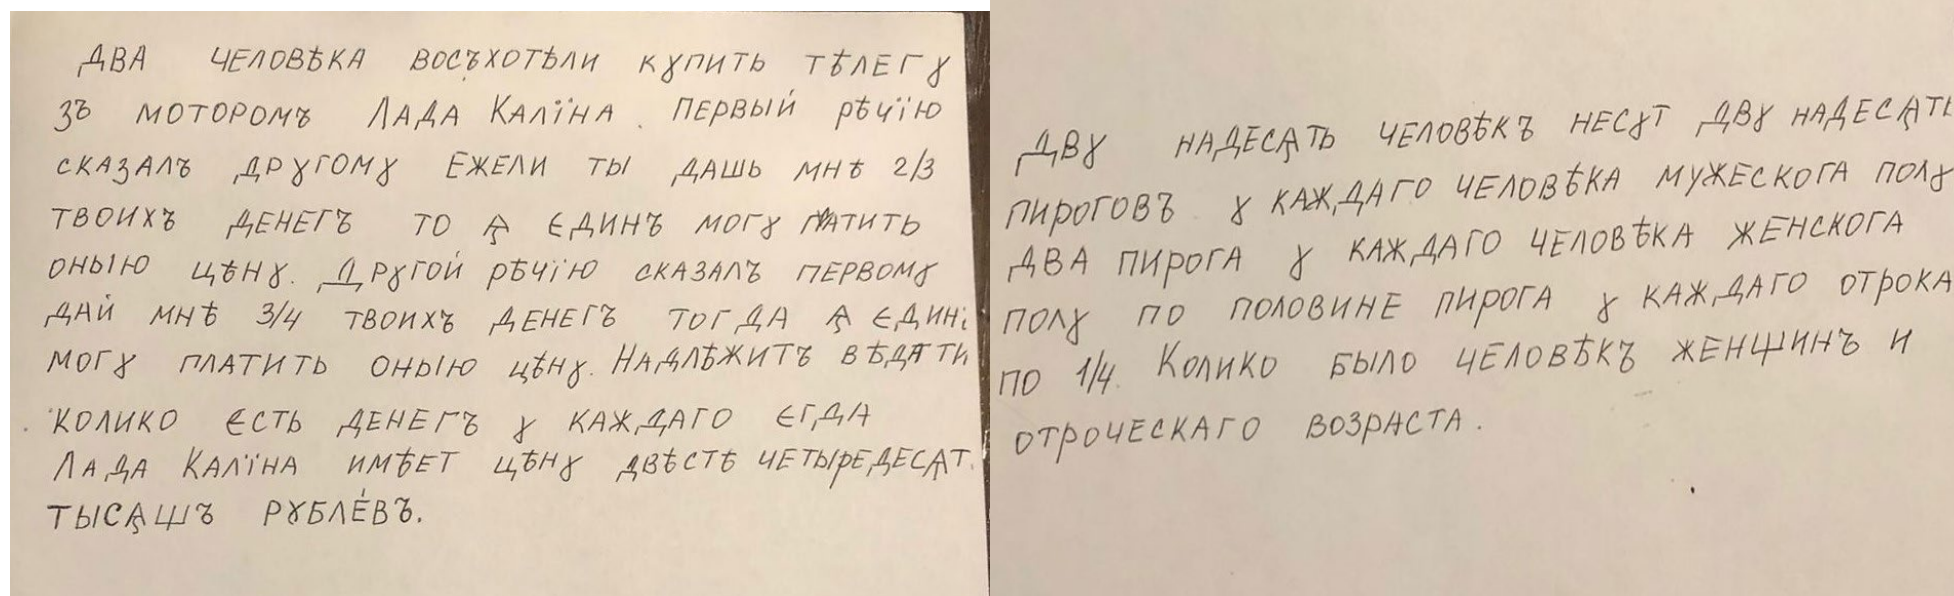 ДВА ЧЕЛОВѢКА ВОСЪХОТѢЛИ КꙊПИТЬ ТѢЛЕГꙊ
ЗЪ МОТОРОМЪ ЛАДА КАЛЇНА. ПЕРВЫЙ РѢЧЇЮ
СКАЗАЛЪ ДРꙊГОМꙊ ЕЖЕЛИ ТЫ ДАШЬ МНѢ 2/3
ТВОИХЪ ДЕНЕГЪ ТО Ѧ ЄДИНЪ МОГꙊ ПЛАТИТЬ
ОНЫЮ ЦѢНꙊ. ДРꙊГОЙ РѢЧЇЮ СКАЗАЛЪ ПЕРВОМꙊ
ДАЙ МНѢ 3/4 ТВОИХЪ ДЕНЕГЪ ТОГДА Ѧ ЄДИНЪ
МОГꙊ ПЛАТИТЬ ОНЫЮ ЦѢНꙊ. НАДЛѢЖИТЪ ВѢДАТИ
КОЛИКО ЄСТЬ ДЕНЕГЪ Ꙋ КАЖДАГО ЄГДА
ЛАДА КАЛЇНА ИМѢЕТ ЦѢНꙊ ДВѢСТѢ ЧЕТЫРЕДЕСѦТ
ТЫСѦЩЪ РꙊБЛЕ́ВЪ.
ДВꙊ НАДЕСѦТЬ ЧЕЛОВѢКЪ НЕСꙊТ ДВꙊ НАДЕСѦТЬ
ПИРОГОВЪ Ꙋ КАЖДАГО ЧЕЛОВѢКА МУЖЕСКОГА ПОЛꙊ
ДВА ПИРОГА Ꙋ КАЖДАГО ЧЕЛОВѢКА ЖЕНСКОГА
ПОЛꙊ ПО ПОЛОВИНЕ ПИРОГА Ꙋ КАЖДАГО ОТРОКА
ПО 1/4. КОЛИКО БЫЛО ЧЕЛОВѢКЪ ЖЕНЩИНЪ И
ОТРОЧЕСКАГО ВОЗРАСТА.